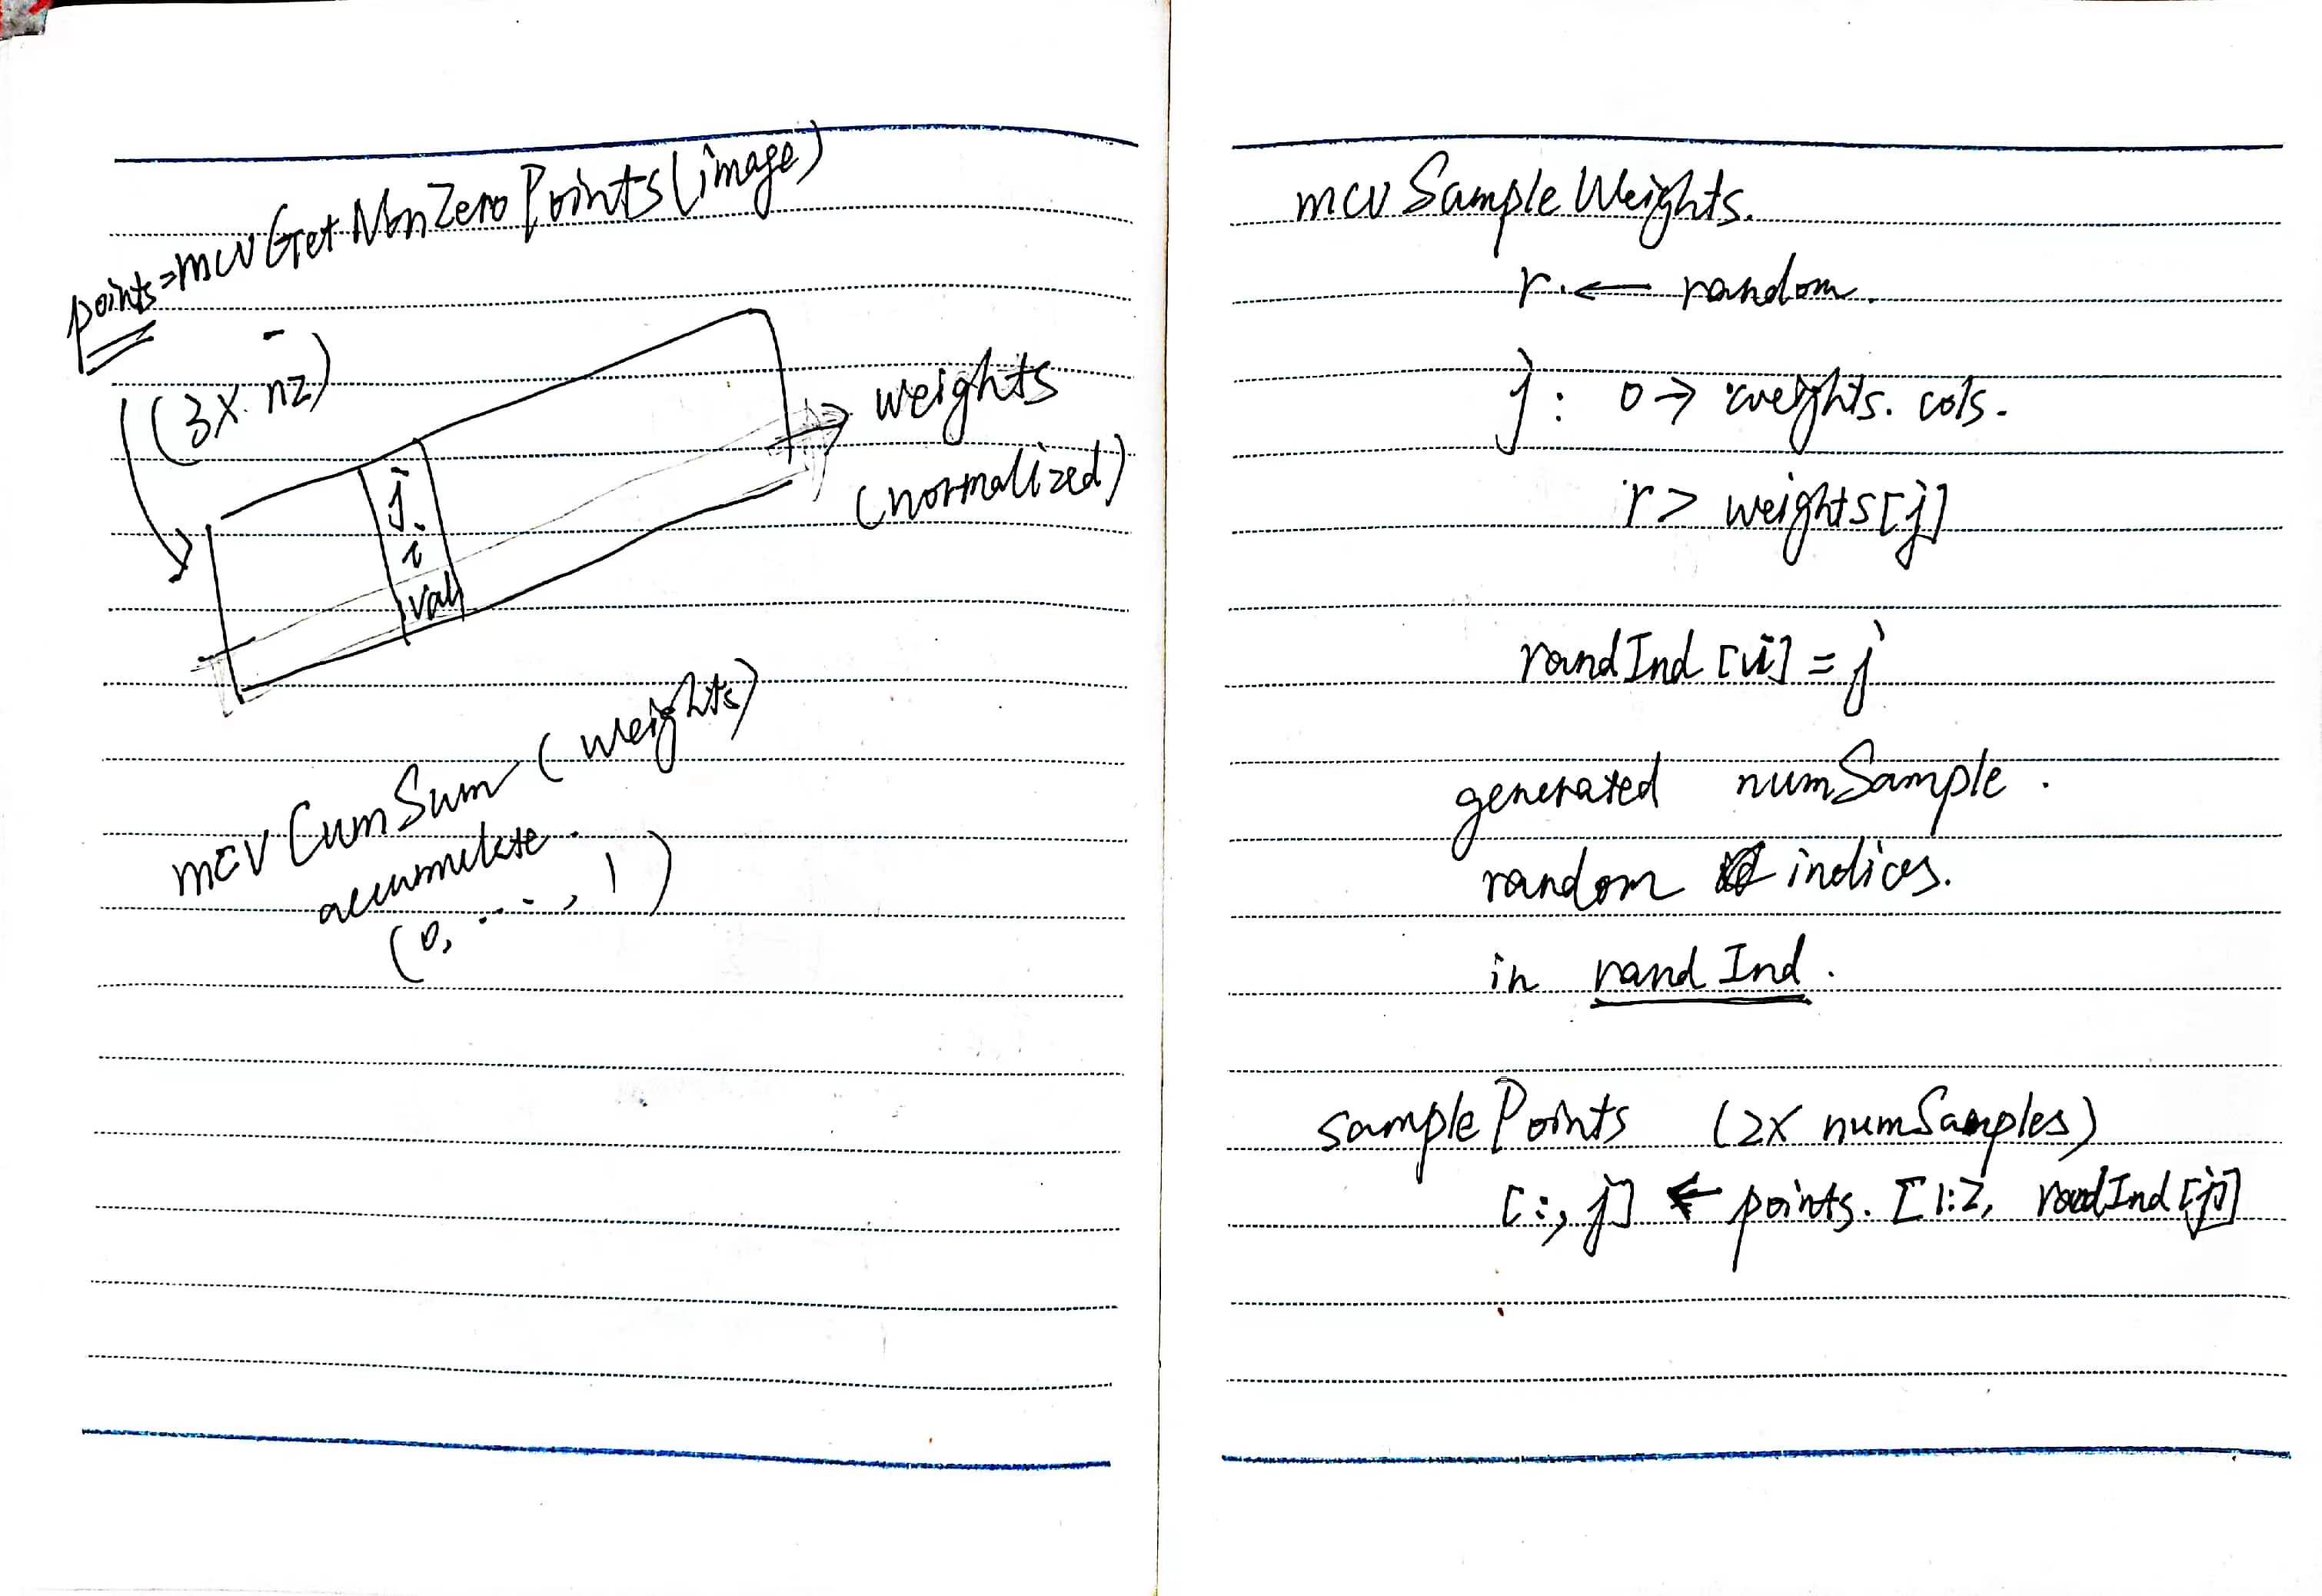 points=mcvGetNonZeroPoints(image)
(3x nz)
j
i
val
weights
(normalized)
mcvCumSum(weights)
accumulate.
(0, ..., 1)
mcvSampleWeights.
r ← random.
j: 0 → weights. cols.
r > weights[j]
randInd [ii] = j
generated numSample.
random indices.
in randInd.
samplePoints (2x numSamples)
[:, j] ← points. [1:2, randInd[j]]